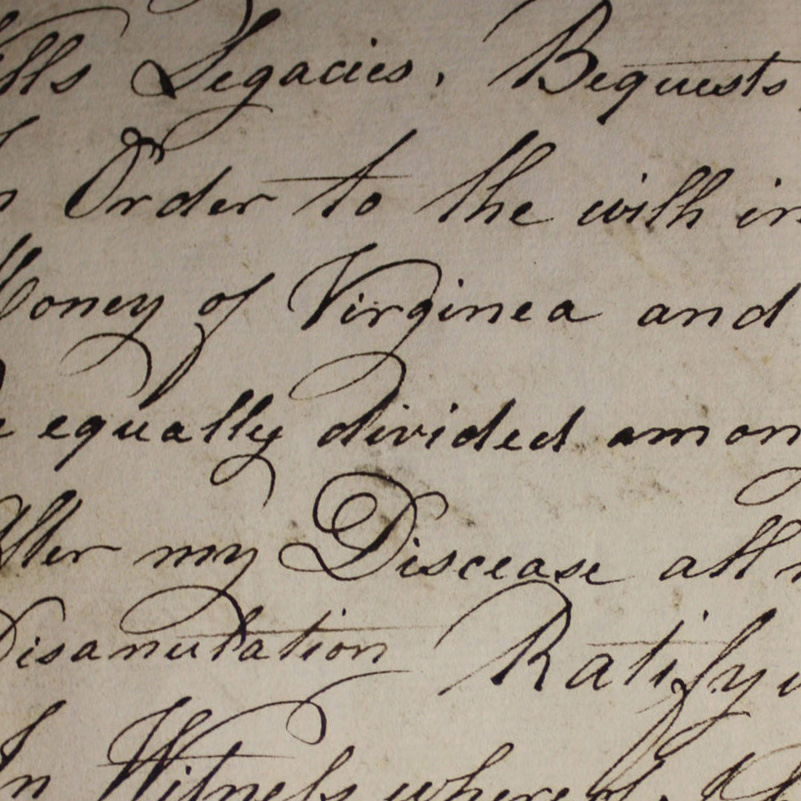 ills Legacies, Bequests,
n Order to the with in
Money of Virginea and
e equally divided among
After my Discease all
Disanulation Ratifyi
In Witness whereof, I